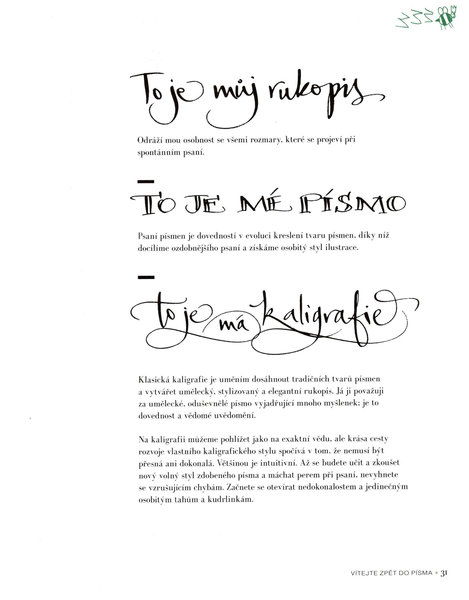 To je můj rukopis
Odráží mou osobnost se všemi rozmary, které se projeví při
spontánním psaní.
TO JE MÉ PÍSMO
Psaní písmen je dovedností v evoluci kreslení tvaru písmen, díky níž
docílíme ozdobnějšího psaní a získáme osobitý styl ilustrace.
to je má kaligrafie
Klasická kaligrafie je uměním dosáhnout tradičních tvarů písmen
a vytvářet umělecký, stylizovaný a elegantní rukopis. Já ji považuji
za umělecké, oduševnělé písmo vyjadřující mnoho myšlenek; je to
dovednost a vědomé uvědomění.
Na kaligrafii můžeme pohlížet jako na exaktní vědu, ale krása cesty
rozvoje vlastního kaligrafického stylu spočívá v tom, že nemusí být
přesná ani dokonalá. Většinou je intuitivní. Až se budete učit a zkoušet
nový volný styl zdobeného písma a máchat perem při psaní, nevyhnete
se vzrušujícím chybám. Začnete se otevírat nedokonalostem a jedinečným
osobitým tahům a kudrlinkám.
VÍTEJTE ZPĚT DO PÍSMA • 31